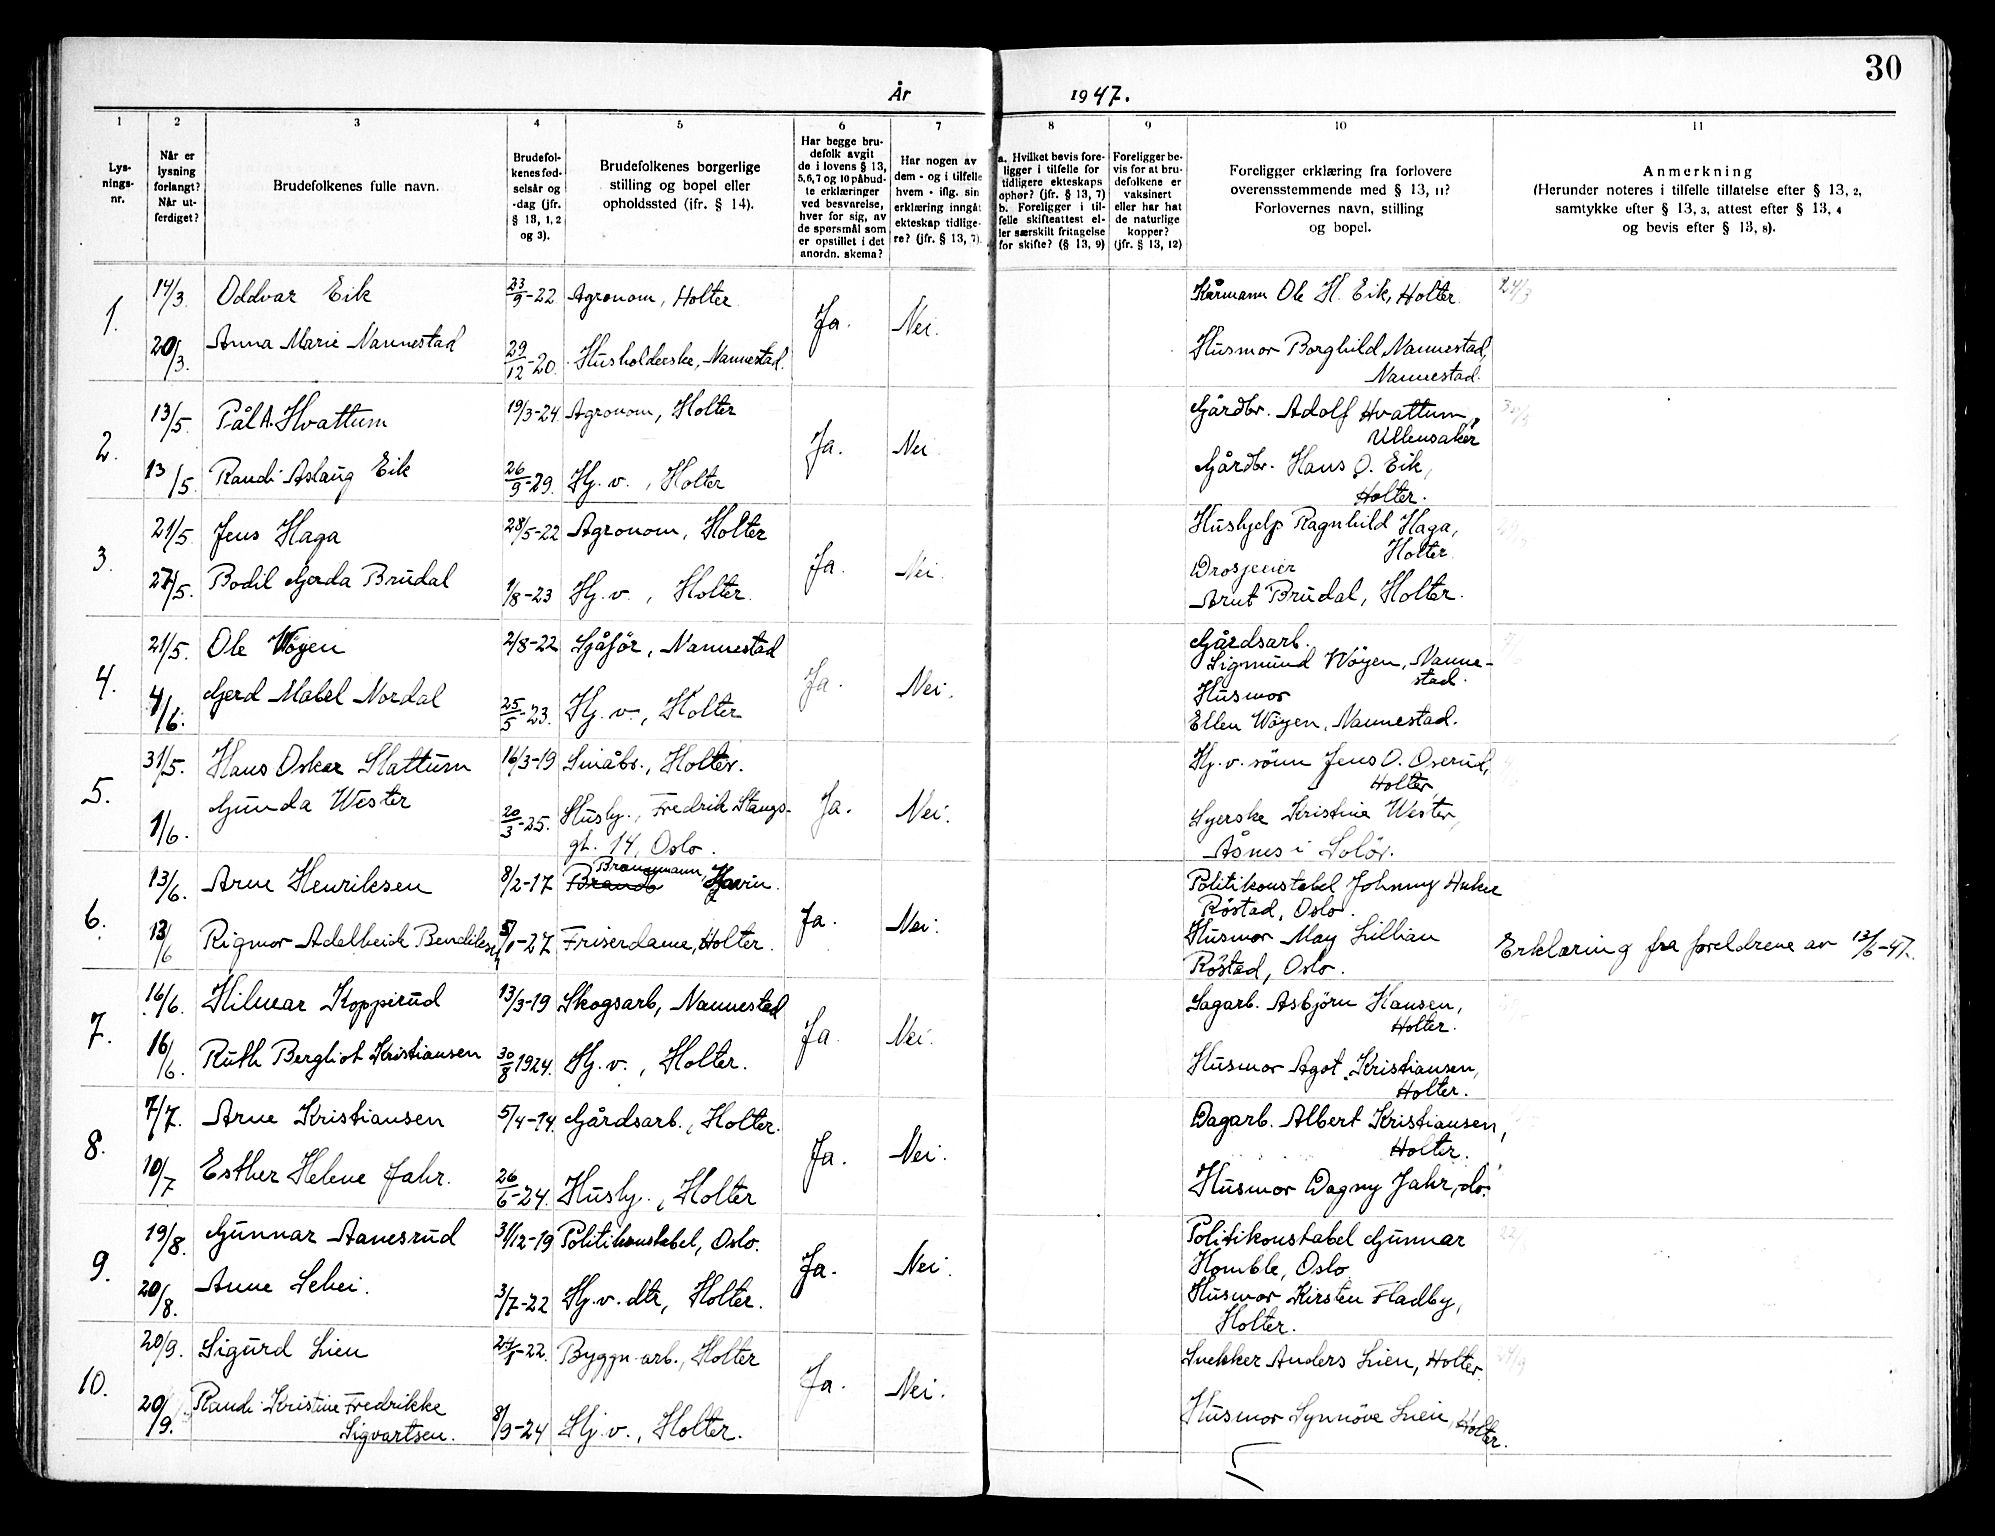 30
År 1947.
1 2 3 4 5 6 7 8 9 10 11
Lys-
nings-
nr.
Når er
lysning
forlangt?
Når ut-
ferdiget?
Brudefolkenes fulle navn.
Brudefol-
kenes fød-
selsår og
-dag (jfr.
§ 13, 1, 2
og 3).
Brudefolkenes borgerlige
stilling og bopel eller
opholdssted (ifr. § 14).
Har begge bru-
defolk avgit
de i lovens § 13,
5,6,7 og 10 påbud-
te erklæringer
ved besvarelse,
hver for sig, av
de spørsmål som
er opstillet i det
anordn. skema?
Har nogen av
dem - og i tilfelle
hvem - iflg. sin
erklæring inngåt
ekteskap tidlige-
re? (jfr. § 13, 7).
a. Hvilket bevis fore-
ligger i tilfelle for
tidligere ekteskaps
ophør? (jfr. § 13, 7)
b. Foreligger i til-
felle skifteattest el-
ler særskilt fritagelse
for skifte? (§ 13, 9)
Foreligger be-
vis for at bru-
defolkene er
vaksinert
eller har hat
de naturlige
kopper?
(jfr. § 13, 12)
Foreligger erklæring fra forlovere
overensstemmende med § 13, 11?
Forlovernes navn, stilling
og bopel.
Anmerkning
(Herunder noteres i tilfelle tillatelse efter § 13, 2,
samtykke efter § 13, 3, attest efter § 13, 4
og bevis efter § 13, 8).
1. 14/3. Oddvar Eik 23/9-22 Agronom, Holter Ja. Nei. Kårmann Ole H. Eik, Holter.
20/3. Anna Marie Nannestad 29/12-20. Husholderske, Nannestad. Husmor Borghild Nannestad,
Nannestad.
2. 13/5. Pål A. Hvattum 19/3-24 Agronom, Holter Ja. Nei Gårdbr. Adolf Hvattum,
Ullensaker
13/5. Randi Aslaug Eik 26/9-29. Hj. v., Holter Gårdbr. Hans O. Eik,
Holter.
3. 21/5. Jens Haga 28/5-22 Agronom, Holter Ja. Nei. Hushjelp Ragnhild Haga,
Holter
27/5. Bodil Gerda Brudal 1/8-23 Hj. v., Holter. Drosjeeier
Arut Brudal, Holter.
4. 21/5. Ole Wøyen 2/8-22 Sjåfør, Nannestad Ja. Nei. Gårdsarb.
Sigmund Wøyen, Nanne-
stad.
4/6. Gerd Mabel Nordal 25/5-23. Hj. v., Holter Husmor
Ellen Wøyen, Nannestad.
5. 31/5. Hans Oskar Slattum 16/3-19 Småbr., Holter. Ja. Nei. Hj. v. sönn Jens O. Oserud,
Holter
1/6. Gunda Wester 20/3-25. Hushj., Fredrik Stangs-
gt. 14, Oslo. Syerske Kristine Wester,
Åsnes i Solör.
6. 13/6. Arne Henriksen 8/2-17 Brandb Brannmann, Ja. Nei. Politikonstabel Johnny
Röstad, Oslo.
13/6 Rigmor Adelheid Bendiksen 5/1-27 Friserdame, Holter. Husmor May Lillian
Röstad, Oslo. Erklæring fra foreldrene av 13/6-47.
7. 16/6. Hilmar Koppirud 13/3-19 Skogsarb, Nannestad Ja Nei. Sagarb. Asbjörn Hansen,
Holter.
16/6. Ruth Bergliot Kristiansen 30/8 1924. Hj. v., Holter. Husmor Agot Kristiansen,
Holter.
8. 7/7. Arne Kristiansen 5/4-14. Gårdsarb., Holter. Ja. Nei. Dagarb. Albert Kristiansen,
Holter.
10/7 Esther Helene Jahr. 26/6-24. Hushj., Holter Husmor Dagny Jahr, do.
9. 19/8. Gunnar Aanesrud 31/12-19 Politikonstabel, Oslo. Ja. Nei. Politikonstabel Gunnar
Homble, Oslo
20/8. Anne Sehei. 3/7-22 Hj. v. dtr, Holter. Husmor Kirsten Fladby,
Holter.
10. 20/9. Sigurd Lien 22. Byggn. arb., Holter Ja. Nei. Snekker Anders Lien, Holter.
20/9. Randi Kristine Fredrikke
Sigvartsen. 8/9-24 Hj. v., Holter. Husmor Synnöve Lien, Holter.